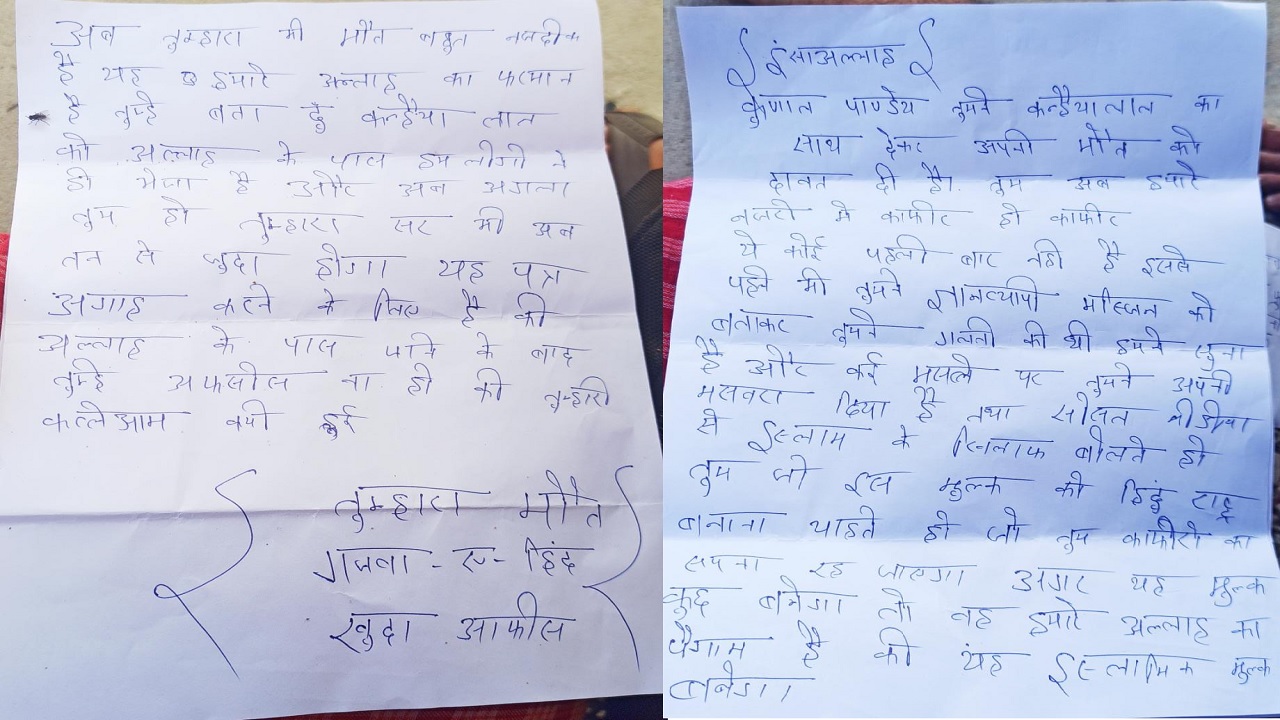 अब तुम्हारा भी मौत बहुत नजदीक
है यह हमारे अल्लाह का फरमान
है तुम्हे बता दुँ कन्हैया लाल
को अल्लाह के पास हम लोगो ने
ही भेजा है और अब अगला
तुम हो तुम्हारा सर भी अब
तन से जुदा होगा यह पत्र
अगाह करने के लिए है की
अल्लाह के पास जाने के बाद
तुम्हे अफसोस ना हो की तुम्हारी
कत्लेआम क्यो हुई
तुम्हारा मौत
गजवा-ए-हिंद
खुदा आफीस
इंसाअल्लाह
कुणाल पाण्डेय तुमने कन्हैयालाल का
साथ देकर अपनी मौत को
दावत दी है। तुम अब हमारे
नजरो मे काफीर हो काफीर
ये कोई पहली बार नही है इससे
पहले भी तुमने ज्ञानव्यापी मस्जिद को
बताकर तुमने गलती की थी हमने सुना
है और कई मसले पर तुमने अपनी
मसवरा दिया है तथा सोसल मीडीया
से इस्लाम के खिलाफ बोलते हो
तुम जो इस मुल्क को हिंदु राष्ट्र
बनाना चाहते हो जो तुम काफीरो का
सपना रह जाएगा अगर यह मुल्क
कुछ बनेगा तो वह हमारे अल्लाह का
पैगाम है की यह इस्लामिक मुल्क
बनेगा।